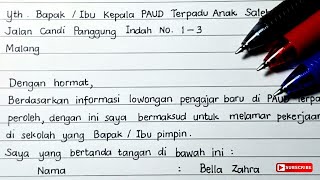 Yth. Bapak / Ibu Kepala PAUD Terpadu Anak Saleh
Jalan Candi Panggung Indah No. 1-3
Malang
Dengan hormat,
Berdasarkan informasi lowongan pengajar baru di PAUD
peroleh, dengan ini saya bermaksud untuk melamar
di sekolah yang Bapak / Ibu pimpin.
Saya yang bertanda tangan di bawah ini :
Nama : Bella Zahra
SUBSCRIBE